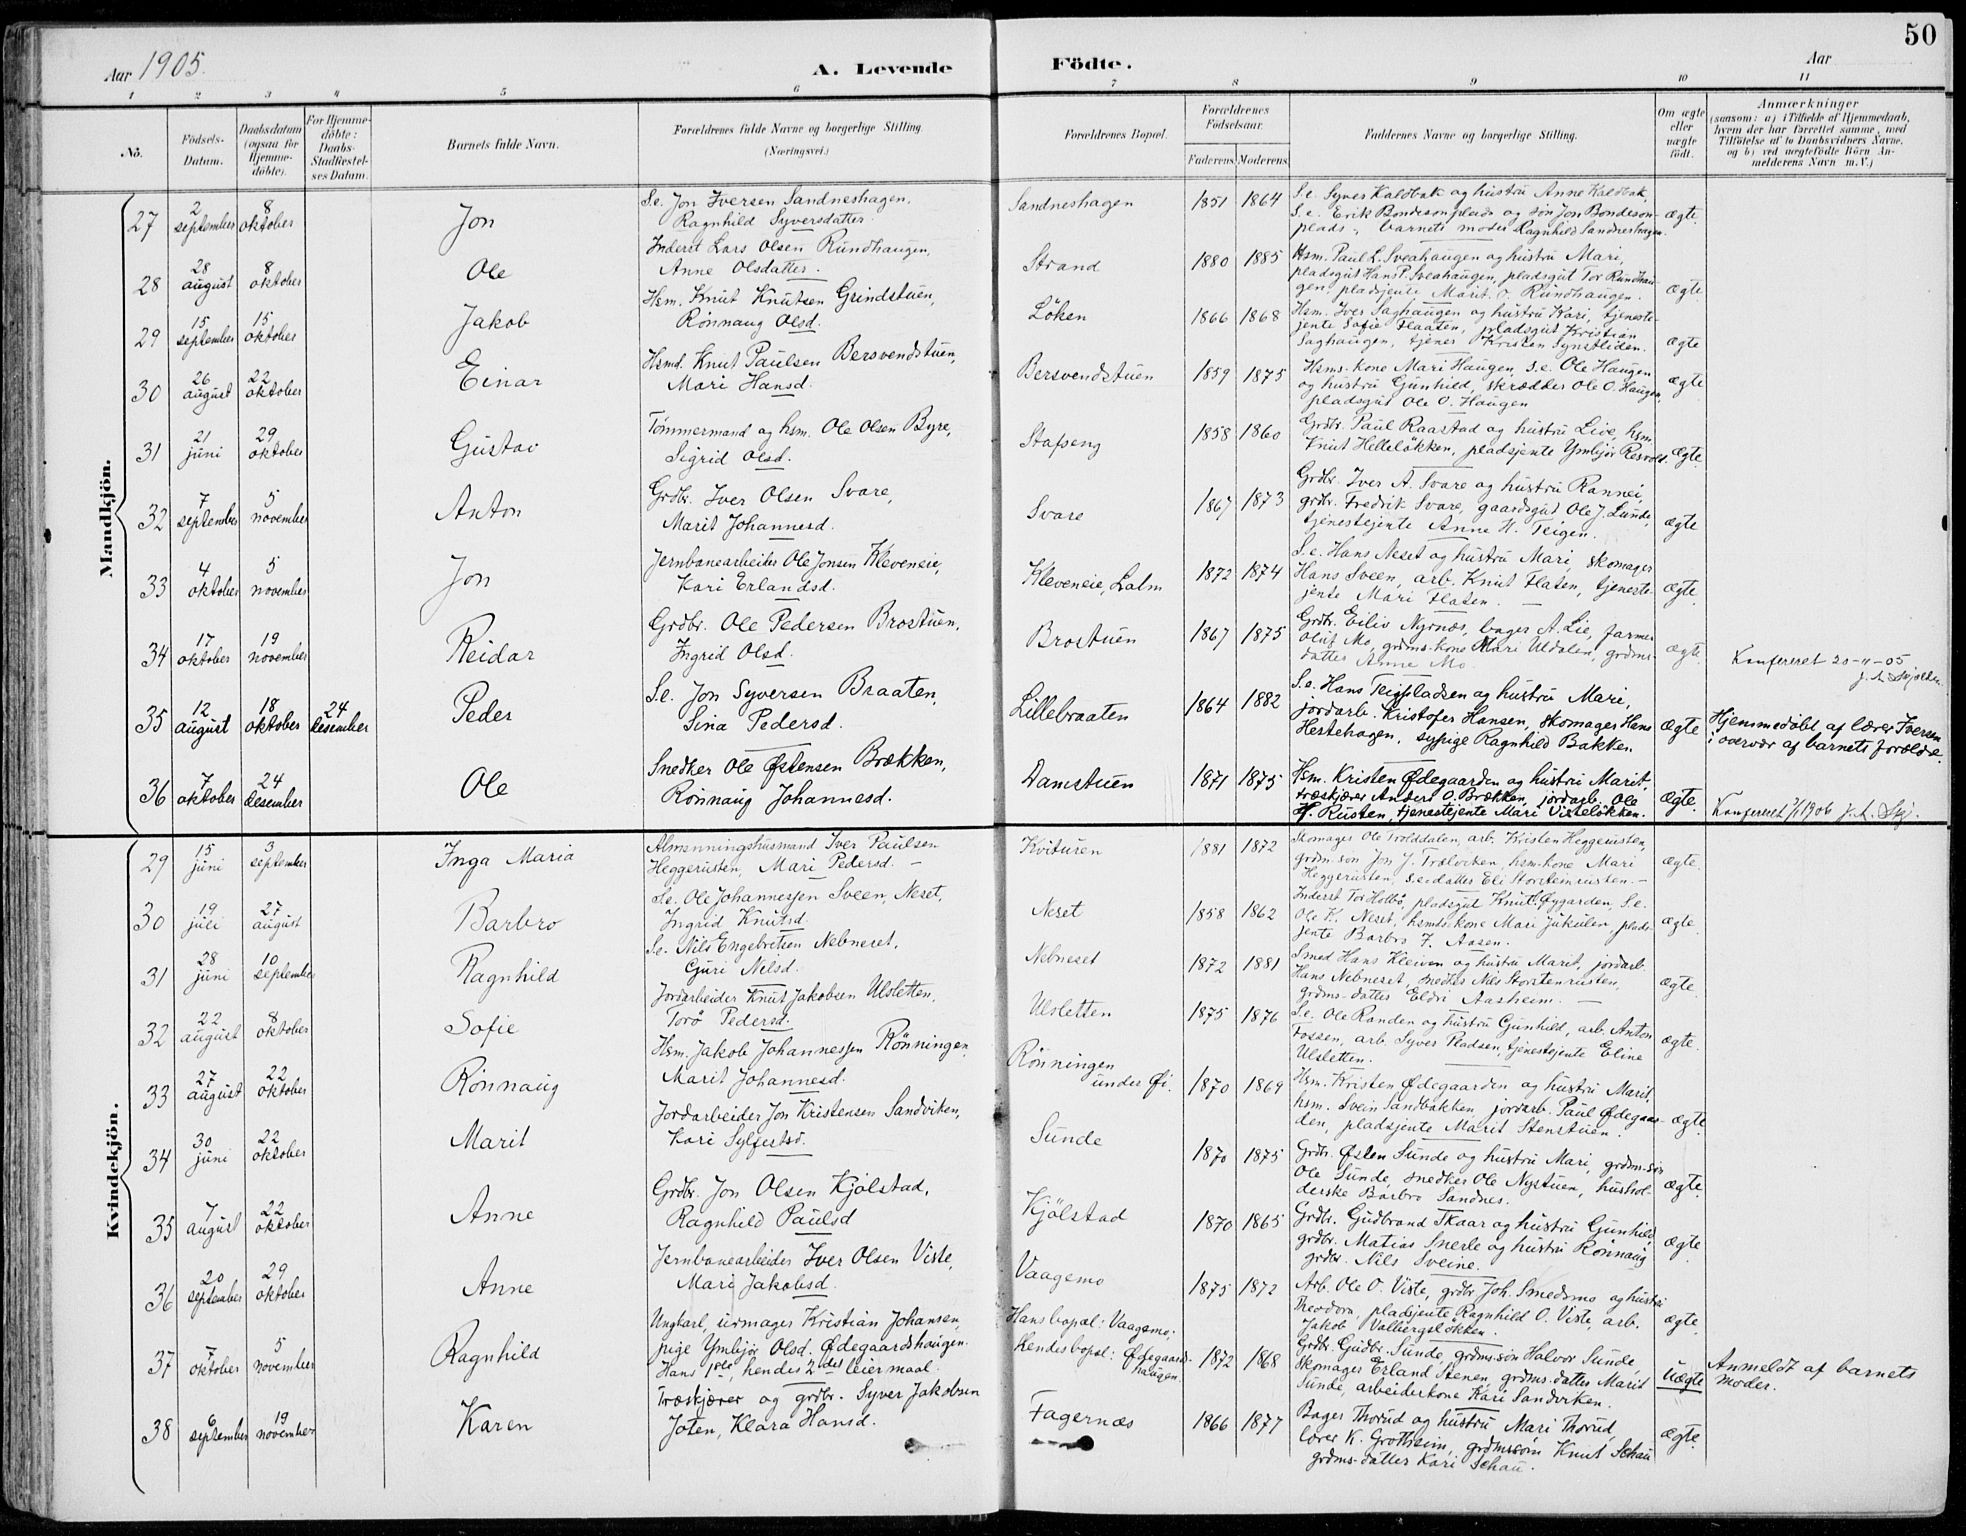 50
Aar 1905.
A. Levende Födte.
Aar
1 2 3 4 5 6 7 8 9 10 11
No.
Födsels-Datum.
Daabsdatum (ogsaa for Hjemme-döbte).
For Hjemme-döbte: Daabs-Stadfæstel-ses Datum.
Barnets fulde Navn.
Forældrenes fulde Navne og borgerlige Stilling. (Næringsvei.)
Forældrenes Bopæl.
Forældrenes Födselsaar.
Faderens. Moderens.
Faddernes Navne og borgerlige Stilling.
Om ægte eller uægte födt.
Anmærkninger
(saasom: a) i Tilfælde af Hjemmedaab, hvem der har forrettet samme, med Tilföielse af to Daabsvidners Navne, og b) ved uægtefödte Börn An-melderens Navn m.V.)
Mandkjön.
27 2 september 8 oktober Jon
S.e. Jon Iversen Sandneshagen,
Ragnhild Syversdatter.
Sandneshagen 1851 1864
S.e. Syver Kaldbak og hustru Anne Kaldbak,
S.e. Erik Bondesonplads og søn Jon Bondeson-
plads, barnets moder Ragnhild Sandneshagen.
ægte
28 28 august 8 oktober Ole
Inderst Lars Olsen Rundhaugen,
Anne Olsdatter.
Strand 1880 1885
Hsm. Paul L. Sveahaugen og hustru Mari,
pladsgut Hans P. Sveahaugen, pladsgut Tor Rundhau-
gen, pladsjente Marit O. Rundhaugen.
ægte
29 15 september 15 oktober Jakob
Hsm. Knut Knutsen Grindstuen,
Rönnaug Olsd.
Löken 1866 1868
Hsm. Iver Saghaugen og hustru Kari, tjeneste-
jente Sofie Flaaten, pladsgut Kristian
Saghaugen, tjener Kristen Synstliden.
ægte
30 26 august 22 oktober Einar
Hsmd. Knut Paulsen Bersvendstuen,
Mari Hansd.
Bersvendstuen 1859 1875
Hsms. kone Mari Haugen, S.e. Ole Haugen
og hustru Gunhild, skrædder Ole O. Haugen,
pladsgut Ole O. Haugen
ægte
31 21 juni 29 oktober Gustav
Tömmermand og hsm. Ole Olsen Byre,
Sigrid Olsd.
Stafseng 1858 1860
Grdbr. Paul Raastad og hustru Live, hsm.
Knut Hellelökken, pladsjente Ymbjør Resvold.
ægte
32 7 september 5 november Anton
Grdbr. Iver Olsen Svare,
Marit Johannesd.
Svare 1867 1873
Grdbr. Iver A. Svare og hustru Rannei,
grdbr. Fredrik Svare, gaardsgut Ole J. Lunde,
tjenestejente Anne H. Teigen.
ægte
33 4 oktober 5 november Jon
Jernbanearbeider Ole Jonsen Kleveneie,
Kari Erlandsd.
Kleveneie, Lalm 1872 1874
S.e. Hans Neset og hustru Mari, skomager
Hans Sveen, arb. Knut Flaten, tjeneste-
jente Mari Flaten.
ægte
34 17 oktober 19 november Reidar
Grdbr. Ole Pedersen Brostuen,
Ingrid Olsd.
Brostuen 1867 1875
Grdbr. Eiliv Nyrnæs, bager A. Lie, farmer
Oluf Mo, grdms. kone Mari Uldalen, grdms-
datter Anne Mo.
ægte
Konfereret 20-11-05
35 12 august 18 oktober 24 desember Peder
S.e. Jon Syversen Braaten,
Sina Pedersd.
Lillebraaten 1864 1882
S.e. Hans Teigpladsen og hustru Mari,
jordarb. Kristofer Hansen, skomager Hans
Hestehagen, sypige Ragnhild Bakken.
ægte
Hjemmedöbt af lærer Iversen
i overvær af barnets forældre.
36 7 oktober 24 desember Ole
Snedker Ole Østensen Brækken,
Rönnaug Johannesd.
Damstuen 1871 1875
Hsm. Kristen Ødegaarden og hustru Marit,
træskjærer Anders O. Brækken, jordarb. Ole
H. Rusten, tjenestejente Mari Vistelökken.
ægte
Konfereret 3/1 1906
Kvindekjön.
29 15 juni 3 september Inga Maria
Almenningshusmand Iver Paulsen
Heggerusten, Mari Pedersd.
Kvituren 1881 1872
Skomager Ole Trolddalen, arb. Kristen Heggerusten,
grdm. søn Jon J. , hsm. kone Mari
Heggerusten, S.e. datter Eli Storstenrusten.
ægte
30 19 juli 27 august Barbro
S.e. Ole Johannessen Sveen, Neset,
Ingrid Knutsd
Neset 1858 1862
Inderst Tor Holbö, pladsgut Knut Øygarden, S.e.
Ole K. Neset, hsmds. kone Mari Jukulen, plads-
jente Barbro J. Aasen.
ægte
31 28 juni 10 september Ragnhild
S.e. Nils Engebretsen Nebneset,
Guri Nilsd.
Nebneset 1872 1881
Smed Hans Kleiven og hustru Marit, jordarb.
Hans Nebneset, snedker Nils Storstenrusten,
grdms-datter Eldri Aasheim.
ægte
32 22 august 8 oktober Sofie
Jordarbeider Knut Jakobsen Ulsletten,
Torö Pedersd.
Ulsletten 1875 1876
S.e. Ole Randen og hustru Gunhild, arb. Anton
Fossen, arb. Syver Pladsen, tjenestejente Eline
Ulsletten.
ægte
33 27 august 22 oktober Rönnaug
Hsm. Jakob Johannessen Rönningen,
Marit Johannesd.
Rönningen under Øi. 1870 1869
Hsm. Kristen Ødegaarden og hustru Marit,
hsm. Svein Sandbakken, jordarb. Paul Ødegaar-
den, pladsjente Marit Stenstuen.
ægte
34 30 juni 22 oktober Marit
Jordarbeider Jon Kristensen Sandviken,
Kari Sylfestsd.
Sunde 1870 1875
Grdbr. Østen Sunde og hustru Mari, grdm-søn
Ole Sunde, snedker Ole Nystuen, hushol-
derske Barbro Sandnes.
ægte
35 7 august 22 oktober Anne
Grdbr. Jon Olsen Kjölstad,
Ragnhild Paulsd
Kjölstad 1870 1865
Grdbr. Gudbrand Skaar og hustru Gunhild,
grdbr. Matias Snerle og hustru Rönnaug,
grdbr. Nils Sveine.
ægte
36 20 september 29 oktober Anne
Jernbanearbeider Iver Olsen Viste,
Mari Jakobsd.
Vaagemo 1875 1872
Arb. Ole O. Viste, grdbr. Joh. Smedsmo og hustru
Theodora, pladsjente Ragnhild O. Viste, arb.
Jakob Valbergslökken.
ægte
37 7 oktober 5 november Ragnhild
Ungkarl, urmager Kristian Johansen,
pige Ymbjør Olsd. Ødegaardshaugen.
Hans 1ste, hendes 2det leiermaal.
Hans bopæl: Vaagemo;
hendes bopæl: Ødegaards-
haugen.
1872 1868
Grdbr. Gudbr. Sunde, grdms-søn Halvor Sunde,
skomager Erland Stenen, grdms-datter Marit
Sunde, arbeiderkone Kari Sandviken.
uægte
Anmeldt af barnets
moder.
38 6 september 19 november Karen
Træskjærer og grdbr. Syver Jakobsen
Joten, Klara Hansd.
Fagernæs 1866 1877
Bager Thorud og hustru Mari Thorud,
lærer K. Grotheim, grdmssøn Knut Schau
grdms-datter Kari Schau.
ægte.